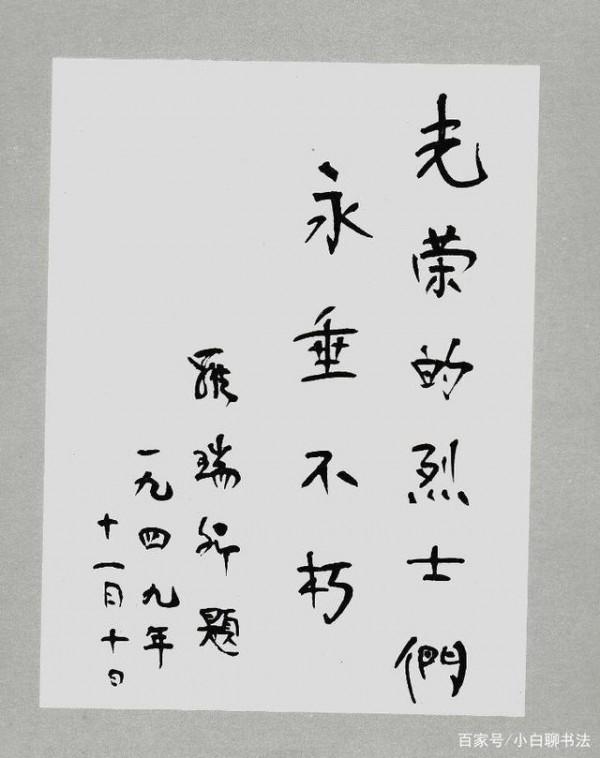 光荣的烈士們
永垂不朽
羅瑞卿題
一九四九年
十一月十日
百家号/小白聊书法